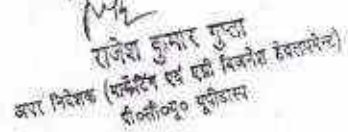 राजेश कुमार गुप्ता
अपर निदेशक (मार्केटिंग एवं एग्री बिजनेस डेवलपमेन्ट)
पी०सी०यू० यूपीडास्प